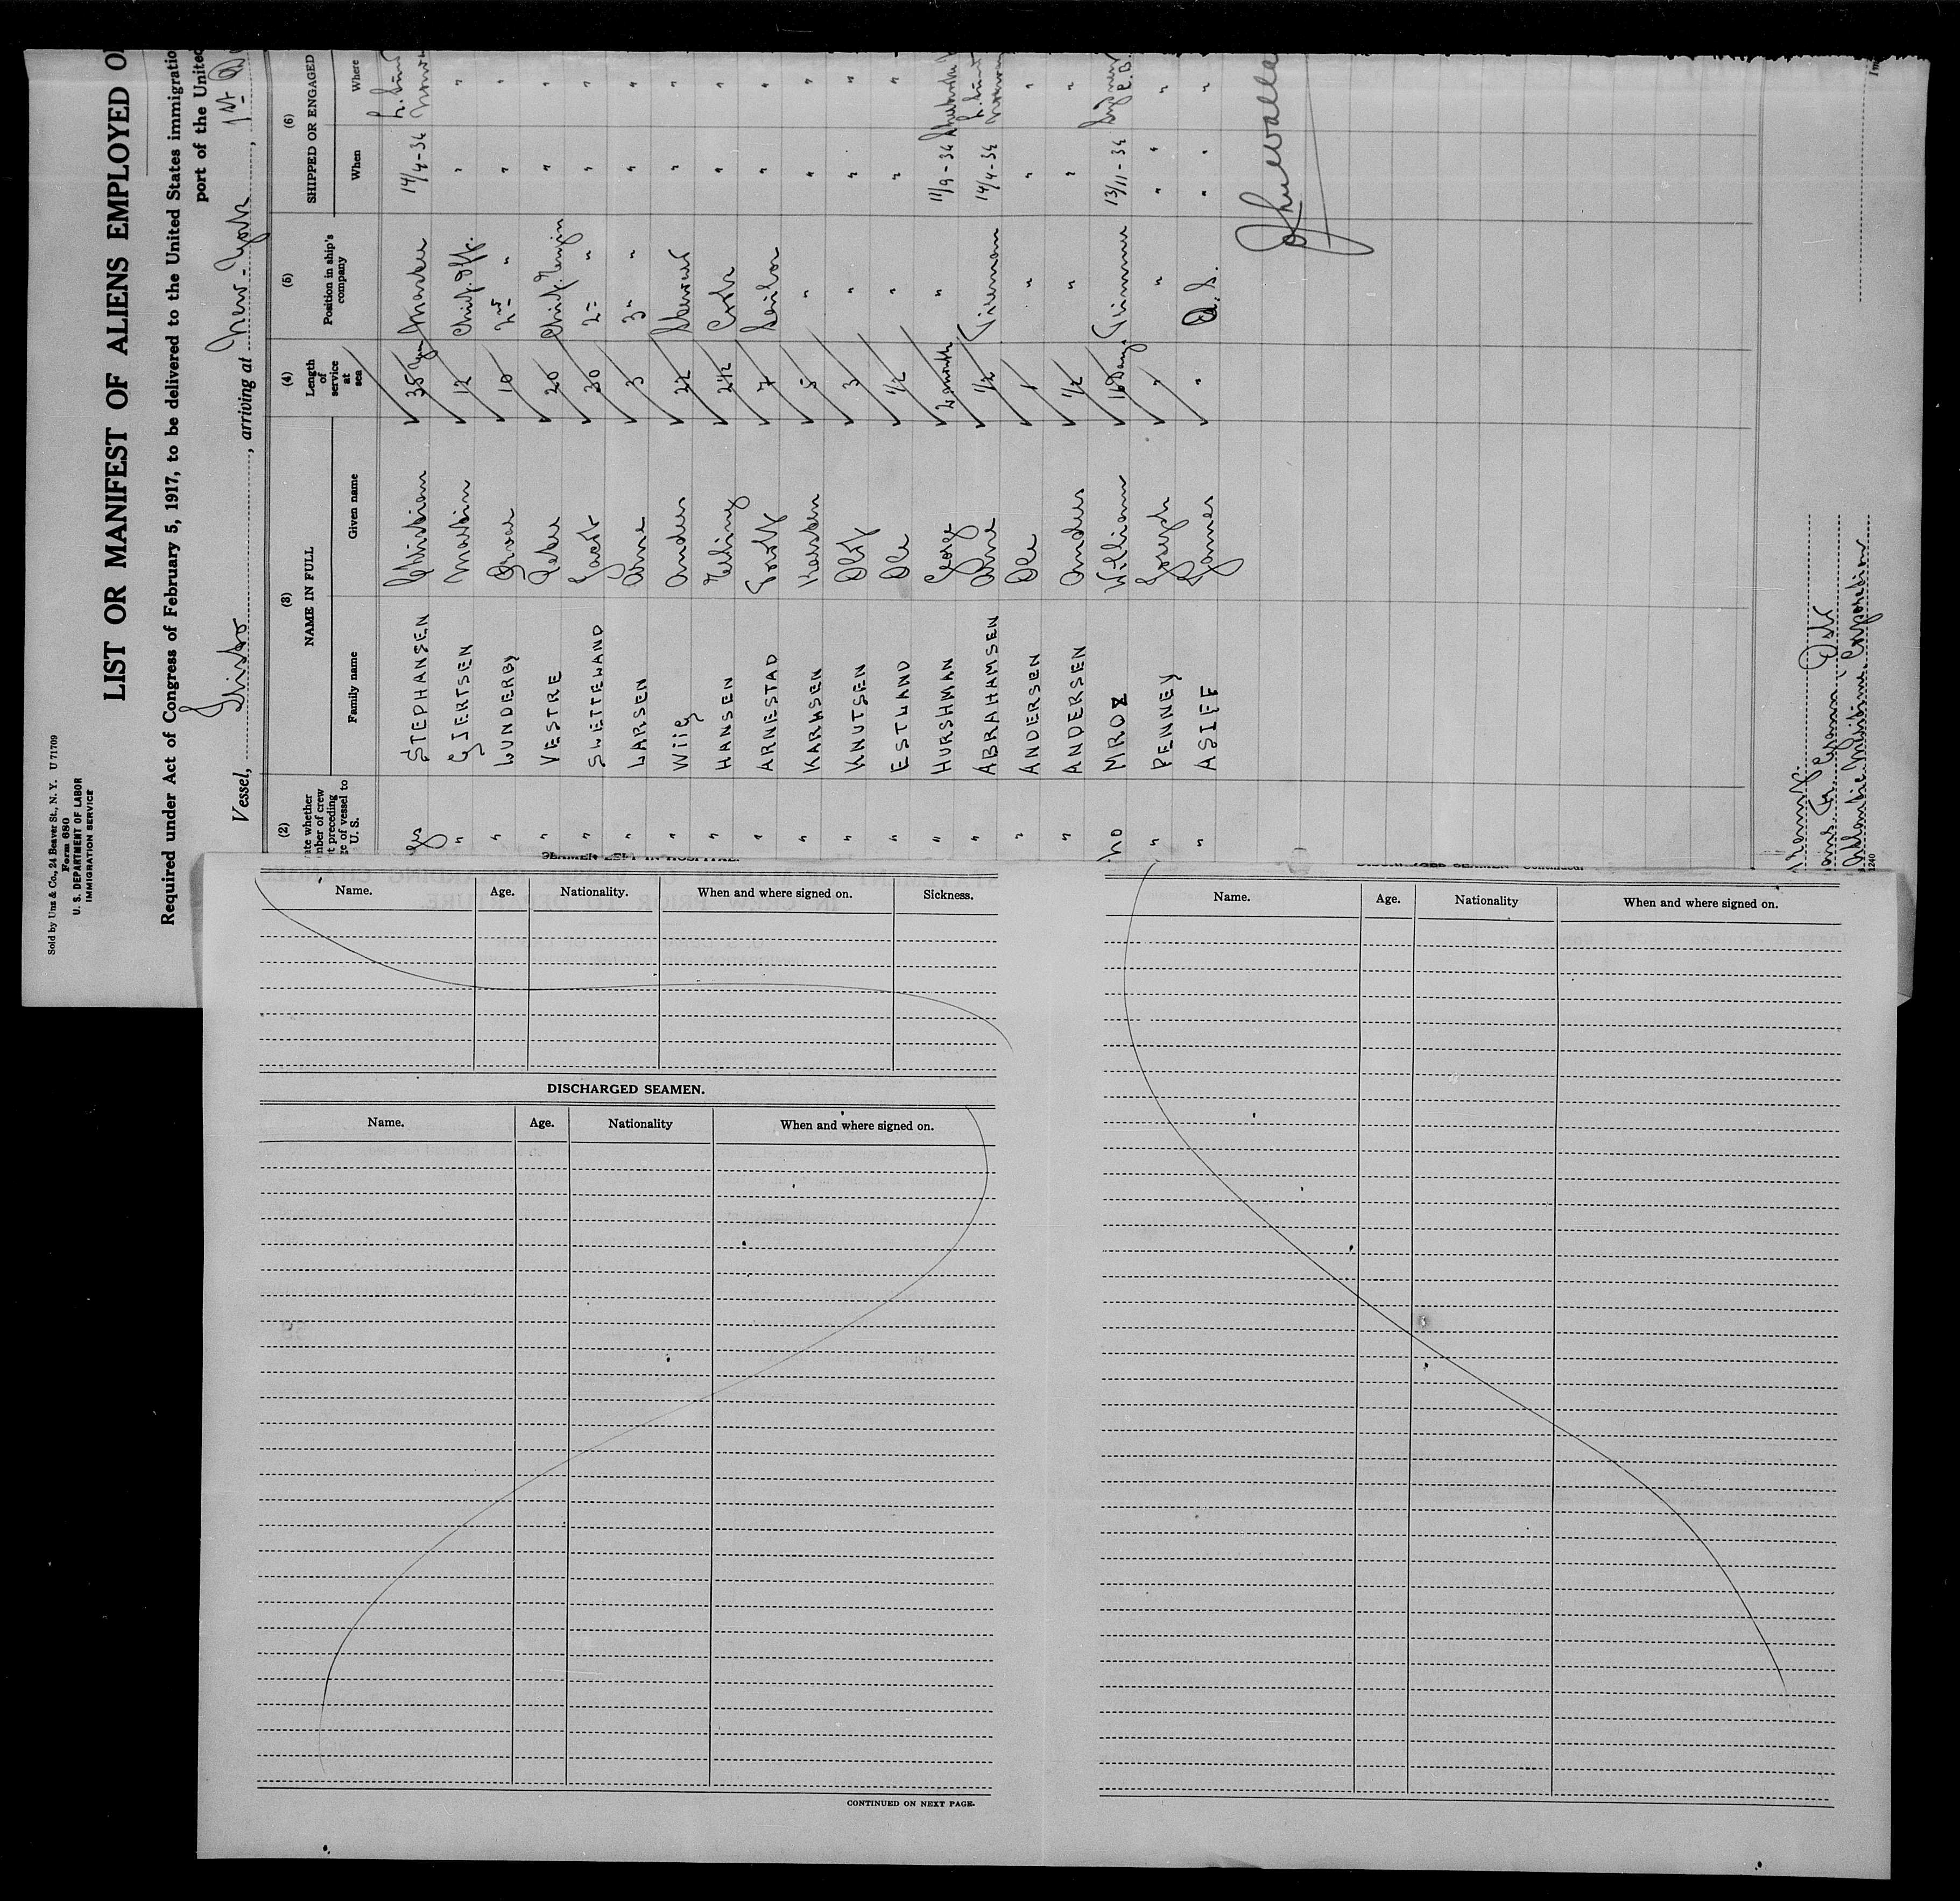 Sold by Unz & Co., 24 Beaver St., N. Y. U 71709
Form 680
U. S. DEPARTMENT OF LABOR
IMMIGRATION SERVICE
LIST OR MANIFEST OF ALIENS EMPLOYED O
Required under Act of Congress of February 5, 1917, to be delivered to the United States immigratio
port of the United
Vessel, arriving at New-York, 1st
(2) (3) (4) (5) (6)
NAME IN FULL SHIPPED OR ENGAGED
ate whether
nber of crew
t preceding
ge of vessel to
U. S.
Family name Given name
Length
of
service
at
sea
Position in ship's
company
When Where
Yes STEPHANSEN Christian 35 14/4-34
" GJERTSEN Martin 12 Chief. Off. " "
" LUNDERBY 10 2nd " " "
" VESTRE Peder 20 Chief. Engin " "
" SLETTELAND 30 2= " " "
" LARSEN Arne 3 3= " " "
" Wiig Anders 22 Steward " "
" HANSEN Erling 2½ Cook " "
" ARNESTAD 7 Sailor " "
" KARHSEN Karsten 5 " " "
" KNUTSEN Olof 3 " " "
" ESTLAND Ole ½ " " "
" HURSHMAN George 2 month " 11/9-34
" ABRAHAMSEN Arne ½ Fireman 14/4-34
" ANDERSEN Ole 1 " " "
" ANDERSEN Anders ½ " " "
no MROZ William 16 Days Trimmer 13/11-34
" PENNEY Joseph " " " " "
" ASIFF James " O.S. " " "
Atlantic Maritime Corporation
1240
SEAMEN LEFT IN HOSPITAL.
Name. Age. Nationality. When and where signed on. Sickness.
DISCHARGED SEAMEN.
Name. Age. Nationality When and where signed on.
CONTINUED ON NEXT PAGE.
Name. Age. Nationality When and where signed on.